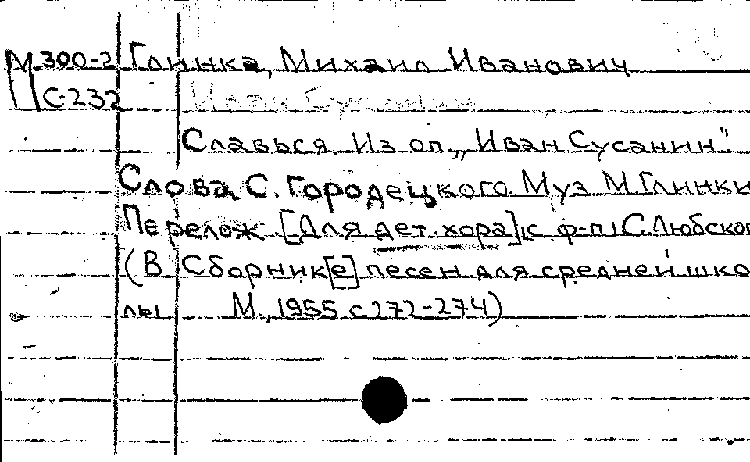 М 300-2 Глинка, Михаил Иванович
С-232 Иван Сусанин
Славься. Из оп. „Иван Сусанин"
Слова С. Городецкого. Муз. М. Глинки
Перелож. [Для дет. хора] с ф-п. С. Любског
(В Сборник[е] песен для средней шко
лы М., 1955 с 272-274)